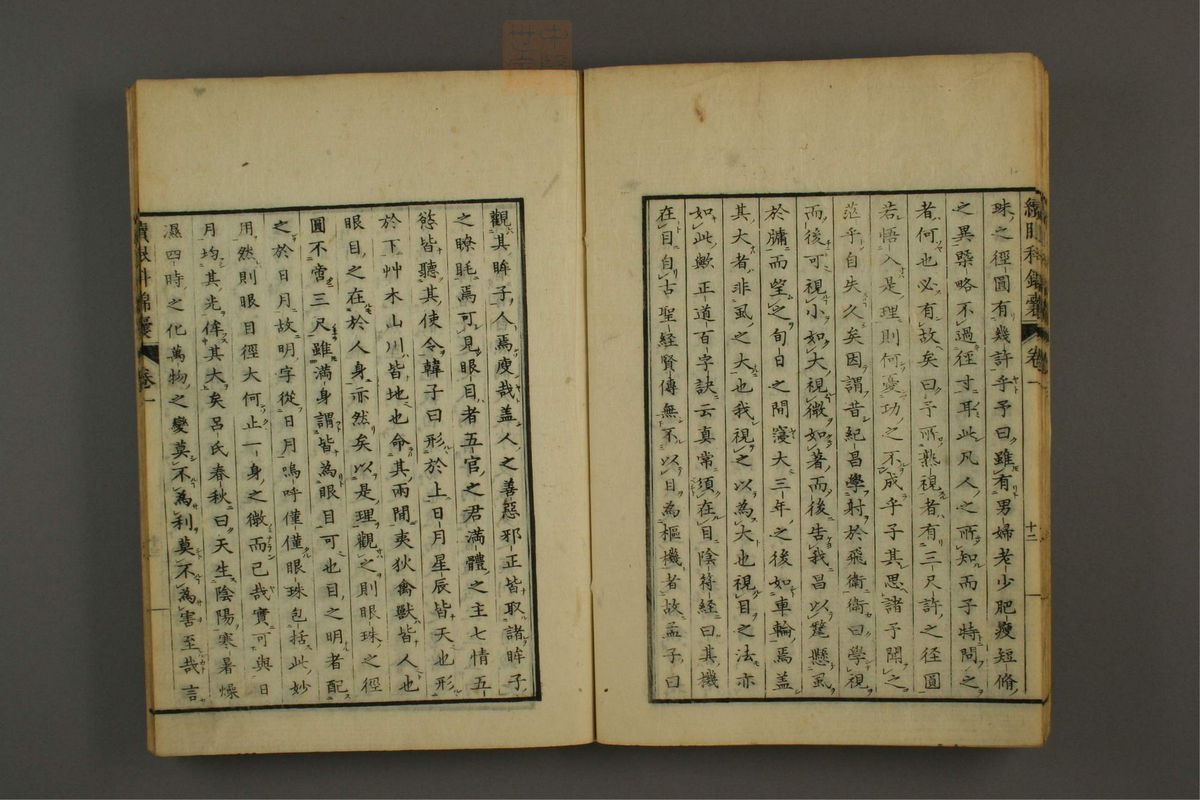 續眼科錦囊 卷一 十二
珠之徑圓有幾許乎予曰雖有男婦老少肥瘦短脩
之異槩略不過徑寸耳此凡人之所知而子特問之
者何也必有故矣曰予所熟視者有三尺許之徑圓
若悟入是理則何憂功之不成乎子其思諸予聞之
茫乎自失久矣因謂昔紀昌學射於飛衛衛曰學視
而後可視小如大視微如著而後告我昌以氂懸虱
於牖而望之旬日之間寖大三年之後如車輪焉蓋
其大者非虱之大也我視之以為大也視目之法亦
如此歟正道百字訣云真常須在目陰符經曰其機
在目自古聖經賢傳無不以目為樞機者故孟子曰
觀其眸子人焉廋哉盖人之善惡邪正皆取諸眸子
之瞭眊焉可見眼目者五官之君滿體之主七情五
慾皆聽其使令韓子曰形於上日月星辰皆天也形
於下艸木山川皆地也命其兩間夷狄禽獸皆人也
眼目之在於人身亦然矣以是理觀之則眼珠之徑
圓不啻三尺雖滿身謂皆為眼目可也目之明者配
之於日月故明字從日月嗚呼僅僅眼珠包括此妙
用然則眼目徑大何止一身之微而已哉實可與日
月均其光侔其大矣呂氏春秋曰天生陰陽寒暑燥
濕四時之化萬物之變莫不為利莫不為害至哉言
續眼科錦囊 卷一